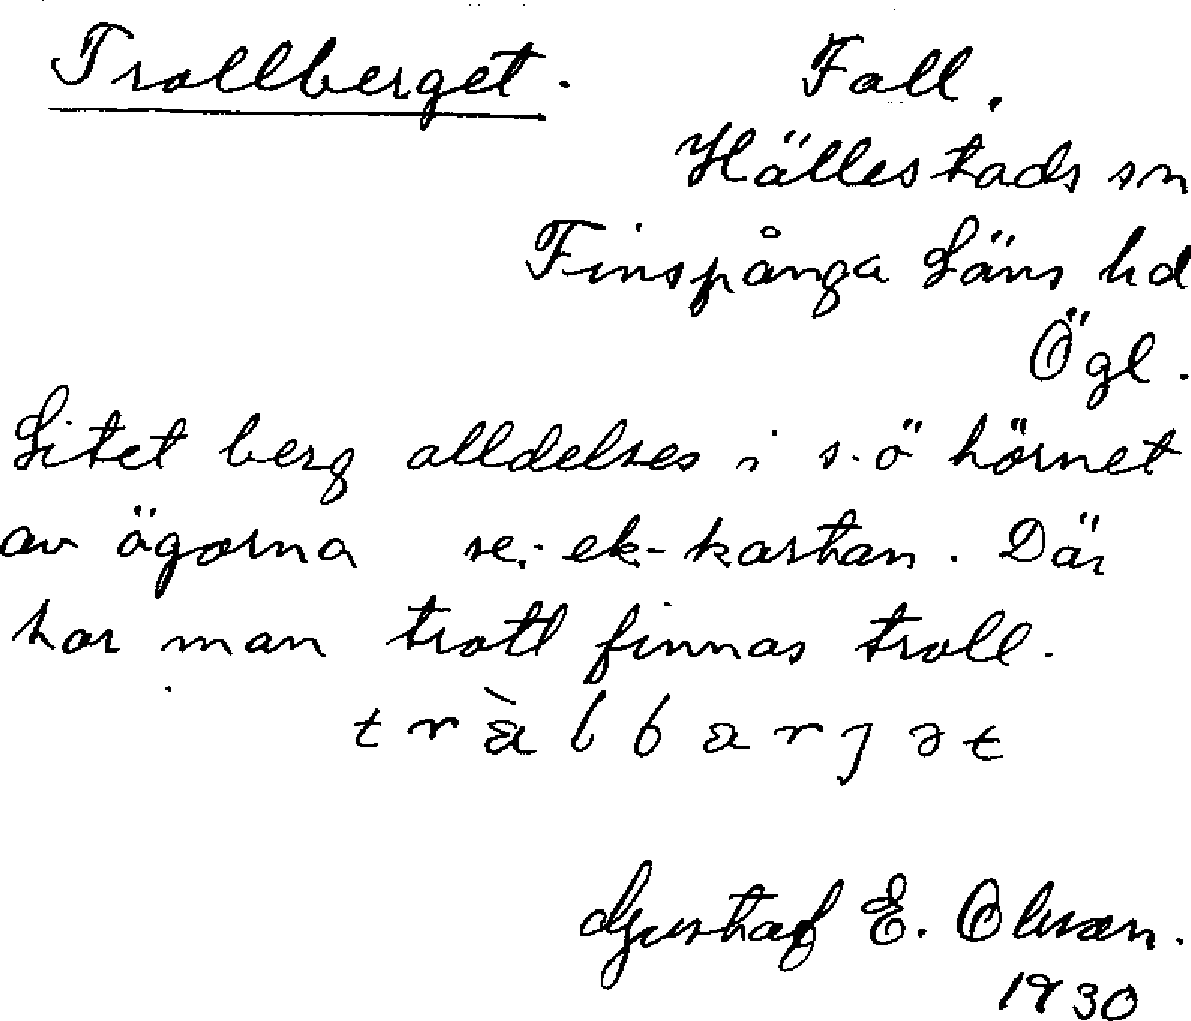 Trollberget. Fall.
Hällestads sn
Finspånga Läns hd
Ögl.
Litet berg alldeles i s.ö hörnet
av ägorna se. ek-kartan. Där
har man trott finnas troll.
Gustaf E. Olsson.
1930